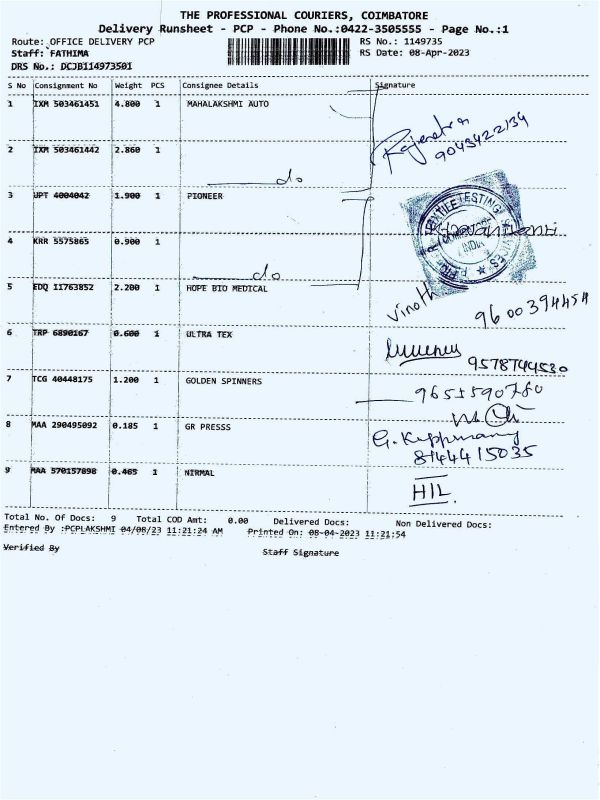 THE PROFESSIONAL COURIERS, COIMBATORE
Delivery Runsheet - PCP - Phone No.:0422-3505555 - Page No.:1
Route: OFFICE DELIVERY PCP RS No.: 1149735
Staff: FATHIMA RS Date: 08-Apr-2023
DRS No.: DCJB114973501
S No Consignment No Weight PCS Consignee Details Signature
1 IXM 503461451 4.800 1 MAHALAKSHMI AUTO
Rajendran
9043422134
2 IXM 503461442 2.860 1
do
3 UPT 4004042 1.900 1 PIONEER
TEXTILE TESTING
COIMBATORE
INDIA
4 KRR 5575865 0.900 1
do
5 EDQ 11763852 2.200 1 HOPE BIO MEDICAL
Vinoth
9600394454
6 TRP 6890167 0.600 1 ULTRA TEX
9578744530
7 TCG 40448175 1.200 1 GOLDEN SPINNERS
9655590780
8 MAA 290495092 0.185 1 GR PRESSS
G. Kuppusamy
8144415035
9 MAA 570157898 0.465 1 NIRMAL
HIL.
Total No. Of Docs: 9 Total COD Amt: 0.00 Delivered Docs: Non Delivered Docs:
Entered By :PCPLAKSHMI 04/08/23 11:21:24 AM Printed On: 08-04-2023 11:21:54
Verified By Staff Signature